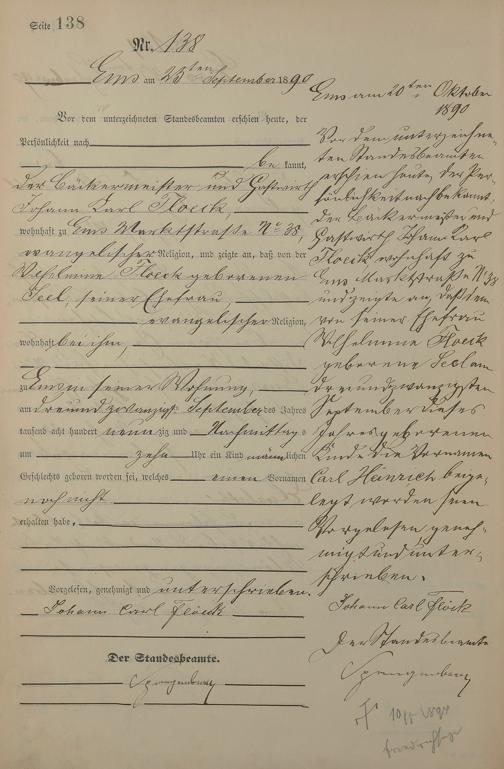 Seite 138
Nr. 138
Ems am 23ten September 1890
Vor dem unterzeichneten Standesbeamten erschien heute, der
Persönlichkeit nach
be kannt,
der Bäckermeister und Gastwirth
Johann Karl Floeck,
wohnhaft zu Ems Marktstraße No 38,
evangelischer Religion, und zeigte an, daß von der
Wilhelmine Floeck geborenen
Seel, seiner Ehefrau,
evangelischer Religion,
wohnhaft bei ihm,
zu Ems in seiner Wohnung,
am dreiundzwanzigsten September des Jahres
tausend acht hundert neunzig und Nachmittags
um zehn Uhr ein Kind männlichen
Geschlechts geboren worden sei, welches einen Vornamen
noch nicht
erhalten habe.
Vorgelesen, genehmigt und unterschrieben.
Johann Carl Flöck
Der Standesbeamte.
Ems am 20ten Oktober
1890
Vor dem unterzeichne-
ten Standesbeamten
erschien heute, der Per-
sönlichkeit nach bekannt,
der Bäckermeister und
Gastwirth Johann Karl
Floeck wohnhaft zu
Ems Marktstraße No 38
und zeigte an, daß dem
von seiner Ehefrau
Wilhelmine Floeck
geborene Seel am
dreiundzwanzigsten
September dieses
Jahres geborenen
Kinde die Vornamen
Carl Heinrich beige-
legt worden seien
Vorgelesen geneh-
migt und unter-
schrieben.
Johann Carl Flöck
Der Standesbeamte